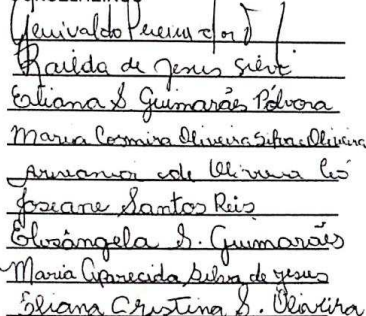 Genivaldo Pereira dos
Railda de Jesus
Eliana S Guimarães Pólvora
Maria Cosmira Oliveira Silva Oliveira
de Oliveira
Joseane Santos Reis
Elosângela S. Guimarães
Maria Aparecida Silva de Jesus
Eliana Cristina S. Oliveira